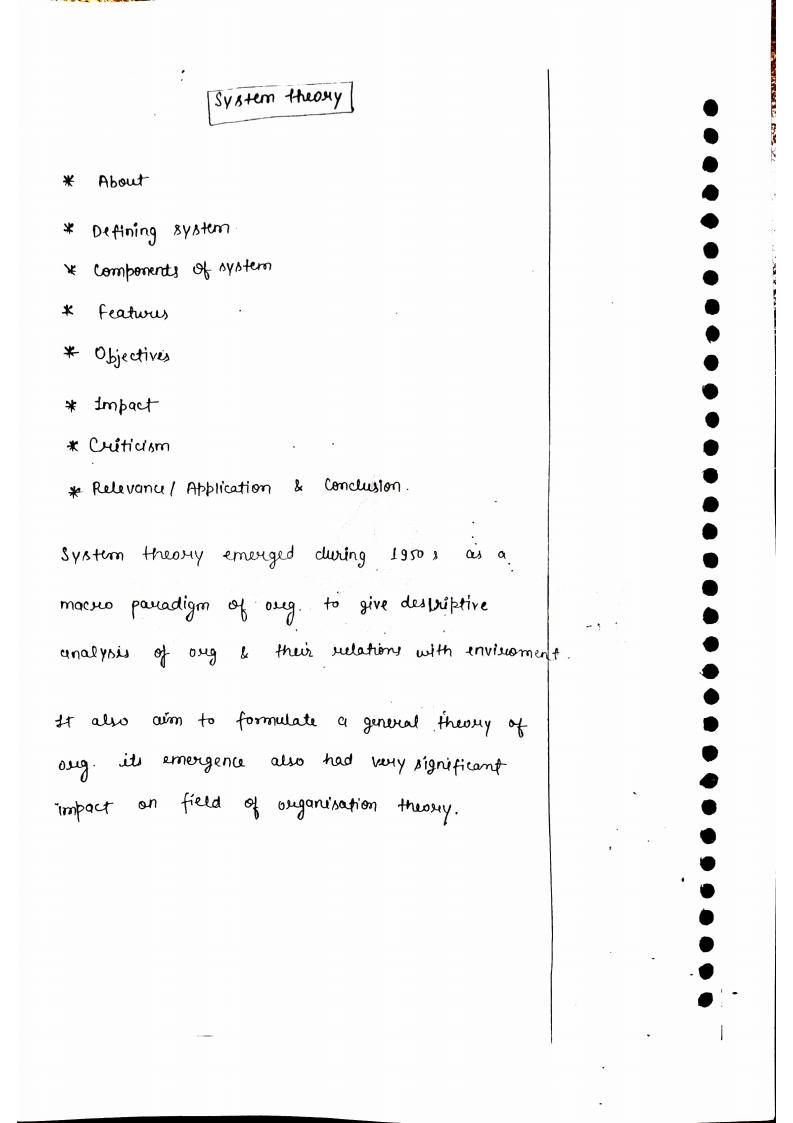 System theory
* About
* Defining system
* Components of system
* Features
* Objectives
* Impact
* Criticism
* Relevance / Application & Conclusion.
System theory emerged during 1950s as a
macro paradigm of org. to give descriptive
analysis of org & their relations with enviroment.
It also aim to formulate a general theory of
org. its emergence also had very significant
impact on field of organisation theory.